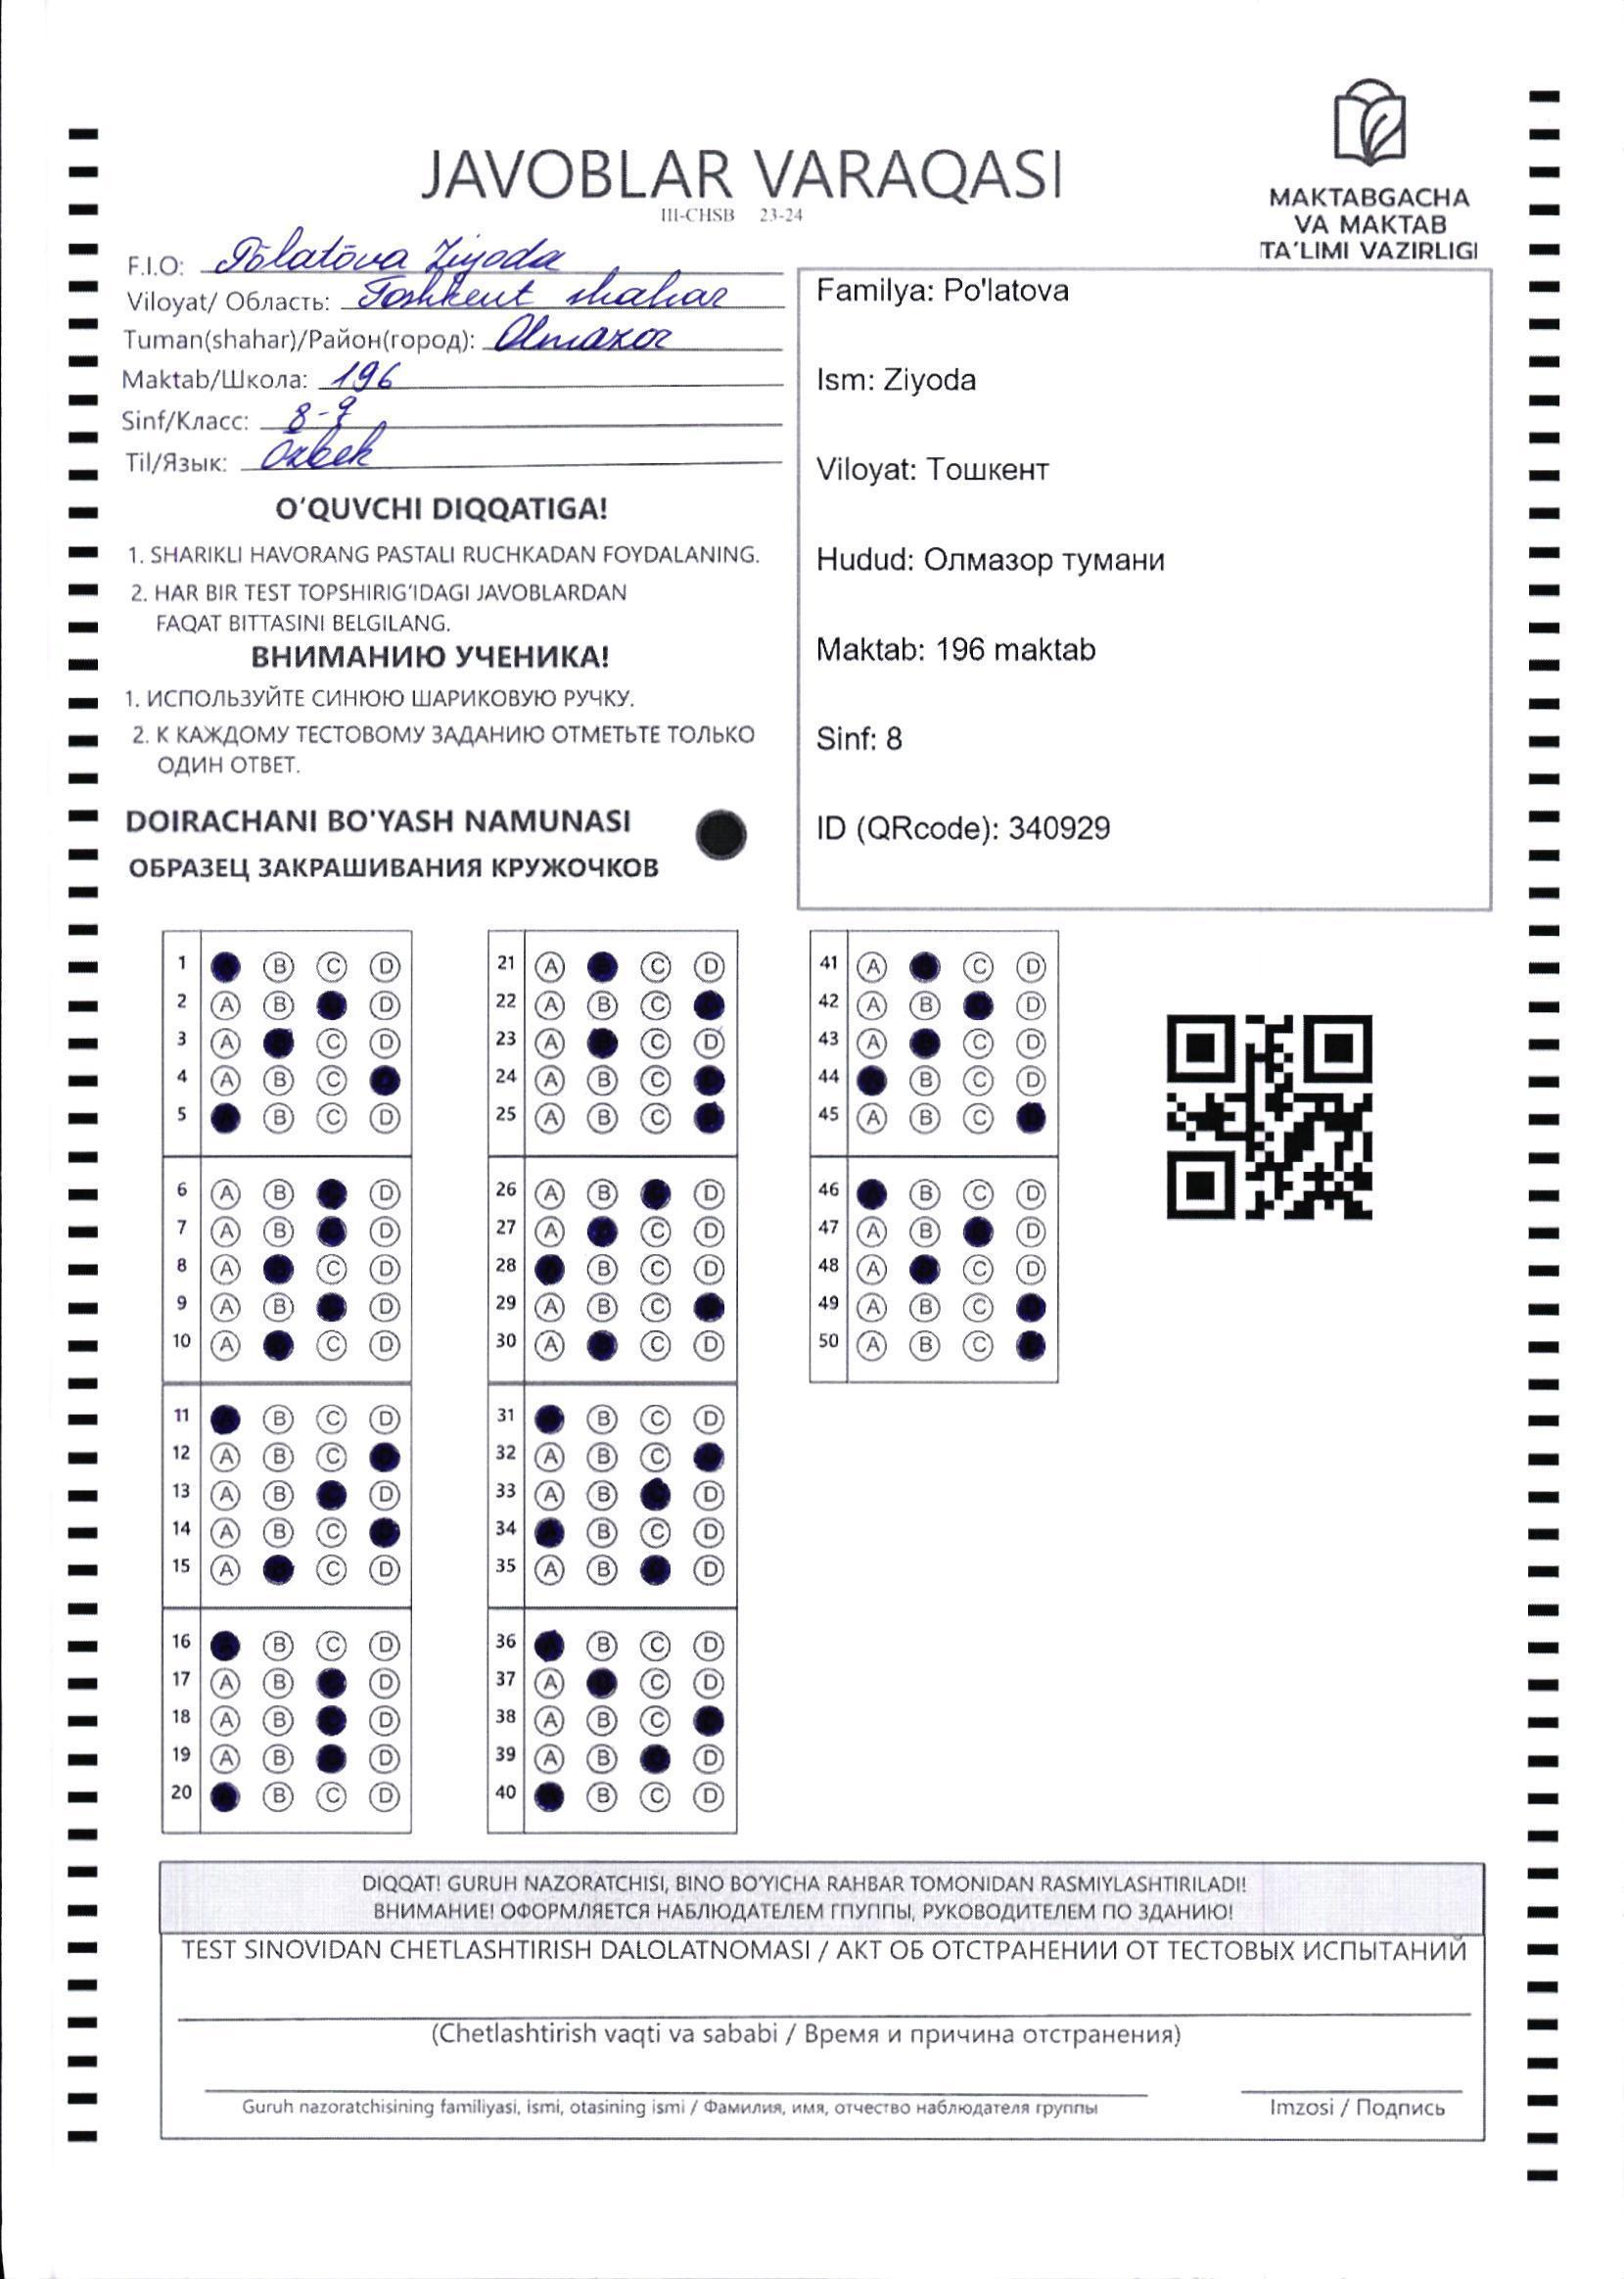 JAVOBLAR VARAQASI
III-CHSB 23-24
MAKTABGACHA
VA MAKTAB
TA'LIMI VAZIRLIGI
F.I.O: Pōlatōva Ziyoda
Viloyat/ Область: Toshkent shahar
Tuman(shahar)/Район(город): Olmaxor
Maktab/Школа: 196
Sinf/Класс: 8-
Til/Язык: Ozbek
O'QUVCHI DIQQATIGA!
1. SHARIKLI HAVORANG PASTALI RUCHKADAN FOYDALANING.
2. HAR BIR TEST TOPSHIRIG'IDAGI JAVOBLARDAN
FAQAT BITTASINI BELGILANG.
ВНИМАНИЮ УЧЕНИКА!
1. ИСПОЛЬЗУЙТЕ СИНЮЮ ШАРИКОВУЮ РУЧКУ.
2. К КАЖДОМУ ТЕСТОВОМУ ЗАДАНИЮ ОТМЕТЬТЕ ТОЛЬКО
ОДИН ОТВЕТ.
DOIRACHANI BO'YASH NAMUNASI
ОБРАЗЕЦ ЗАКРАШИВАНИЯ КРУЖОЧКОВ
Familya: Po'latova
Ism: Ziyoda
Viloyat: Тошкент
Hudud: Олмазор тумани
Maktab: 196 maktab
Sinf: 8
ID (QRcode): 340929
1 B C D
2 A B D
3 A C D
4 A B C
5 B C D
6 A B D
7 A B D
8 A C D
9 A B D
10 A C D
11 B C D
12 A B C
13 A B D
14 A B C
15 A C D
16 B C D
17 A B D
18 A B D
19 A B D
20 B C D
21 A C D
22 A B C
23 A C D
24 A B C
25 A B C
26 A B D
27 A C D
28 B C D
29 A B C
30 A C D
31 B C D
32 A B C
33 A B D
34 B C D
35 A B D
36 B C D
37 A C D
38 A B C
39 A B D
40 B C D
41 A C D
42 A B D
43 A C D
44 B C D
45 A B C
46 B C D
47 A B D
48 A C D
49 A B C
50 A B C
DIQQAT! GURUH NAZORATCHISI, BINO BO'YICHA RAHBAR TOMONIDAN RASMIYLASHTIRILADI!
ВНИМАНИЕ! ОФОРМЛЯЕТСЯ НАБЛЮДАТЕЛЕМ ГПУППЫ, РУКОВОДИТЕЛЕМ ПО ЗДАНИЮ!
TEST SINOVIDAN CHETLASHTIRISH DALOLATNOMASI / АКТ ОБ ОТСТРАНЕНИИ ОТ ТЕСТОВЫХ ИСПЫТАНИЙ
(Chetlashtirish vaqti va sababi / Время и причина отстранения)
Guruh nazoratchisining familiyasi, ismi, otasining ismi / Фамилия, имя, отчество наблюдателя группы
Imzosi / Подпись